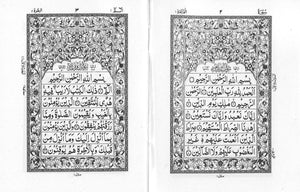 بِسْمِ اللهِ الرَّحْمٰنِ الرَّحِيْمِ
اَلْحَمْدُ لِلّٰهِ رَبِّ الْعٰلَمِيْنَ
الرَّحْمٰنِ الرَّحِيْمِ مٰلِكِ يَوْمِ الدِّيْنِ
اِيَّاكَ نَعْبُدُ وَاِيَّاكَ نَسْتَعِيْنُ
اِهْدِنَا الصِّرَاطَ الْمُسْتَقِيْمَ
صِرَاطَ الَّذِيْنَ اَنْعَمْتَ عَلَيْهِمْ غَيْرِ
الْمَغْضُوْبِ عَلَيْهِمْ وَلَا الضَّآلِّيْنَ
بِسْمِ اللهِ الرَّحْمٰنِ الرَّحِيْمِ
الٓمّٓ ذٰلِكَ الْكِتٰبُ لَا رَيْبَ فِيْهِ
هُدًى لِّلْمُتَّقِيْنَ الَّذِيْنَ يُؤْمِنُوْنَ
بِالْغَيْبِ وَيُقِيْمُوْنَ الصَّلٰوةَ وَمِمَّا
رَزَقْنٰهُمْ يُنْفِقُوْنَ وَالَّذِيْنَ يُؤْمِنُوْنَ
بِمَآ اُنْزِلَ اِلَيْكَ وَمَآ اُنْزِلَ مِنْ
قَبْلِكَ وَبِالْاٰخِرَةِ هُمْ يُوْقِنُوْنَ